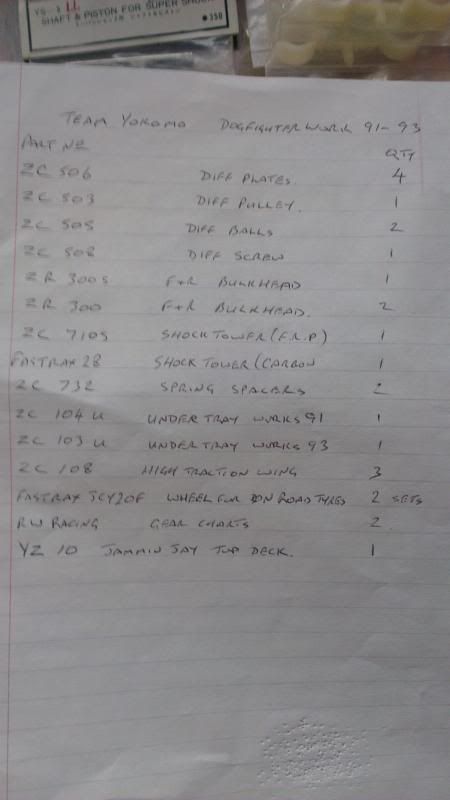 YS-3 LL
SHAFT & PISTON FOR SUPER SHOCK
●350
TEAM YOKOMO DOGFIGHTER WORK 91-93
PART NO QTY
ZC 506 DIFF PLATES. 4
ZC 503 DIFF PULLEY. 1
ZC 505 DIFF BALLS 2
ZC 508 DIFF SCREW 1
ZR 300S F+R BULKHEAD 1
ZR 300 F+R BULKHEAD. 2
ZC 710S SHOCK TOWER (F.R.P) 1
FASTRAX 28 SHOCK TOWER (CARBON 1
ZC 732 SPRING SPACERS 2
ZC 104 U UNDER TRAY WORKS 91 1
ZC 103 U UNDER TRAY WORKS 93 1
ZC 108 HIGH TRACTION WING 3
FASTRAX JCY20F WHEEL FOR ON ROAD TYRES 2 SETS
RW RACING GEAR CHARTS 2
YZ 10 JAMMIN JAY TOP DECK. 1